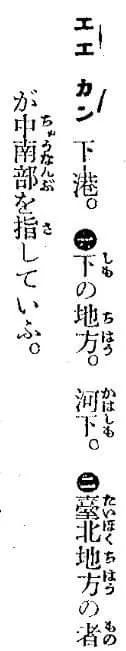 エエ カン/ 下港。 ㊀下の地方。 河下。 ㊁臺北地方の者
が中南部を指していふ。